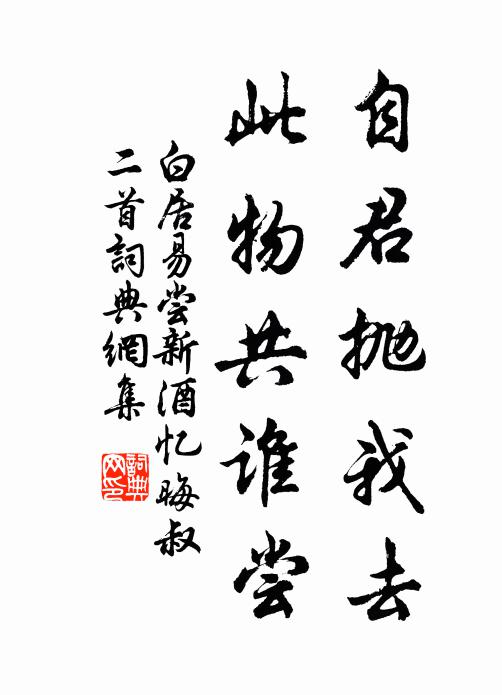 自君抛我去
此物共谁尝
白居易尝新酒忆晦叔
二首詞典網集
詞典
网印